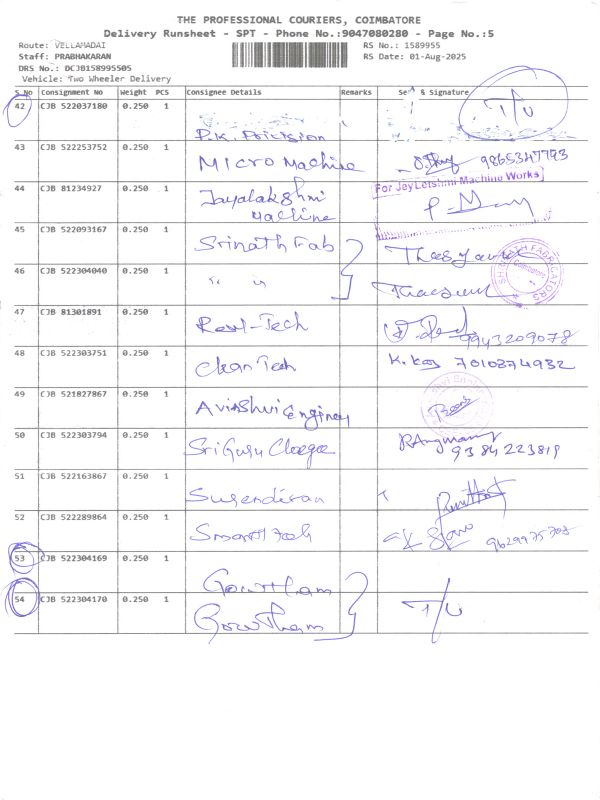 THE PROFESSIONAL COURIERS, COIMBATORE
Delivery Runsheet - SPT - Phone No.:9047080280 - Page No.:5
Route: VELLAMADAI RS No.: 1589955
Staff: PRABHAKARAN RS Date: 01-Aug-2025
DRS No.: DCJB158995505
Vehicle: Two Wheeler Delivery
S No Consignment No Weight PCS Consignee Details Remarks & Signature
42 CJB 522037180 0.250 1 P.K. T/U
43 CJB 522253752 0.250 1 Micro Machine 9865347793
44 CJB 81234927 0.250 1 Jayalakshmi Machine
For JeyLetshmi Machine Works
45 CJB 522093167 0.250 1 Srinath Fab
46 CJB 522304040 0.250 1 " "
SHRINATH FABRICATORS
Coimbatore
47 CJB 81301891 0.250 1 -Tech 9943209078
48 CJB 522303751 0.250 1 Tech 7010874932
49 CJB 521827867 0.250 1
50 CJB 522303794 0.250 1 Sri Guru 9384223819
51 CJB 522163867 0.250 1 Surendiran
52 CJB 522289864 0.250 1
53 CJB 522304169 0.250 1 Gowtham
54 CJB 522304170 0.250 1 Gowtham T/U